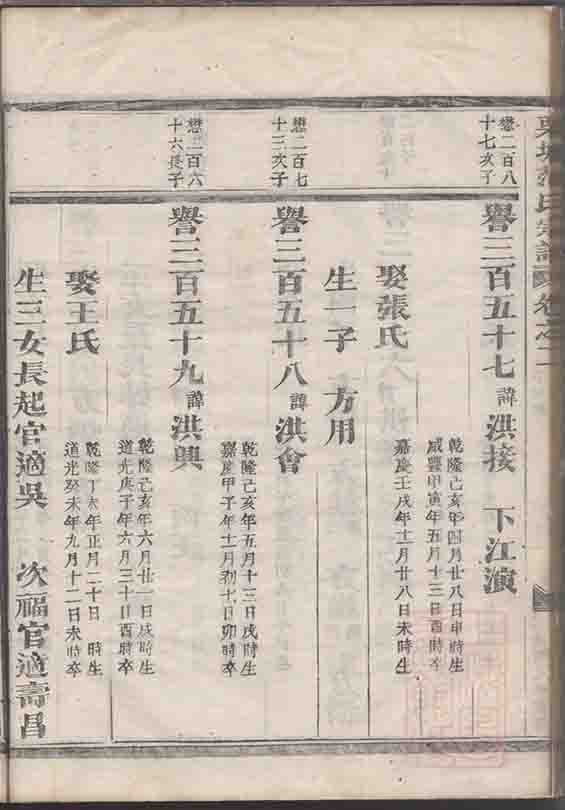 氏宗譜 卷之二
懋二百八
十七次子
譽三百五十七 諱 洪接 下江演
乾隆己亥年四月廿八日申時生
咸豐甲寅年五月十三日酉時卒
娶張氏
嘉慶壬戌年十一月廿八日未時生
生一子 方用
懋二百七
十三次子
譽三百五十八 諱 洪會
乾隆己亥年五月十三日戌時生
嘉慶甲子年十一月初七日卯時卒
懋二百六
十六長子
譽三百五十九 諱 洪興
乾隆己亥年六月廿一日戌時生
道光庚子年六月三十日酉時卒
娶王氏
乾隆丁未年正月二十日 時生
道光癸未年九月十二日未時卒
生三女長起官適吳 次福官適壽昌